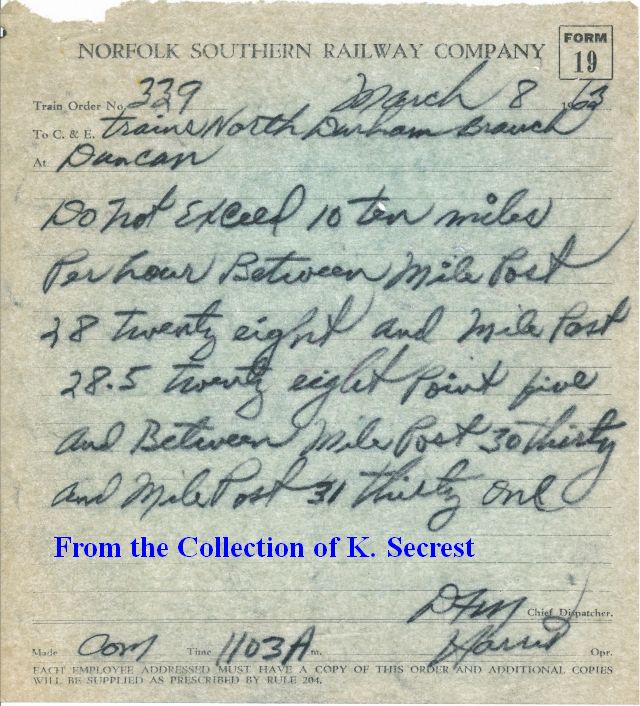 FORM
19
NORFOLK SOUTHERN RAILWAY COMPANY
Train Order No. 339 March 8 1963
To C. & E. trains North Durham Branch
At Duncan
Do not Exceed 10 ten miles
Per hour Between Mile Post
28 twenty eight and Mile Post
28.5 twenty eight Point five
and Between Mile Post 30 thirty
and Mile Post 31 thirty one
From the Collection of K. Secrest
DFM Chief Dispatcher.
Made Com Time 1103A m. Harris Opr.
EACH EMPLOYEE ADDRESSED MUST HAVE A COPY OF THIS ORDER AND ADDITIONAL COPIES
WILL BE SUPPLIED AS PRESCRIBED BY RULE 204.